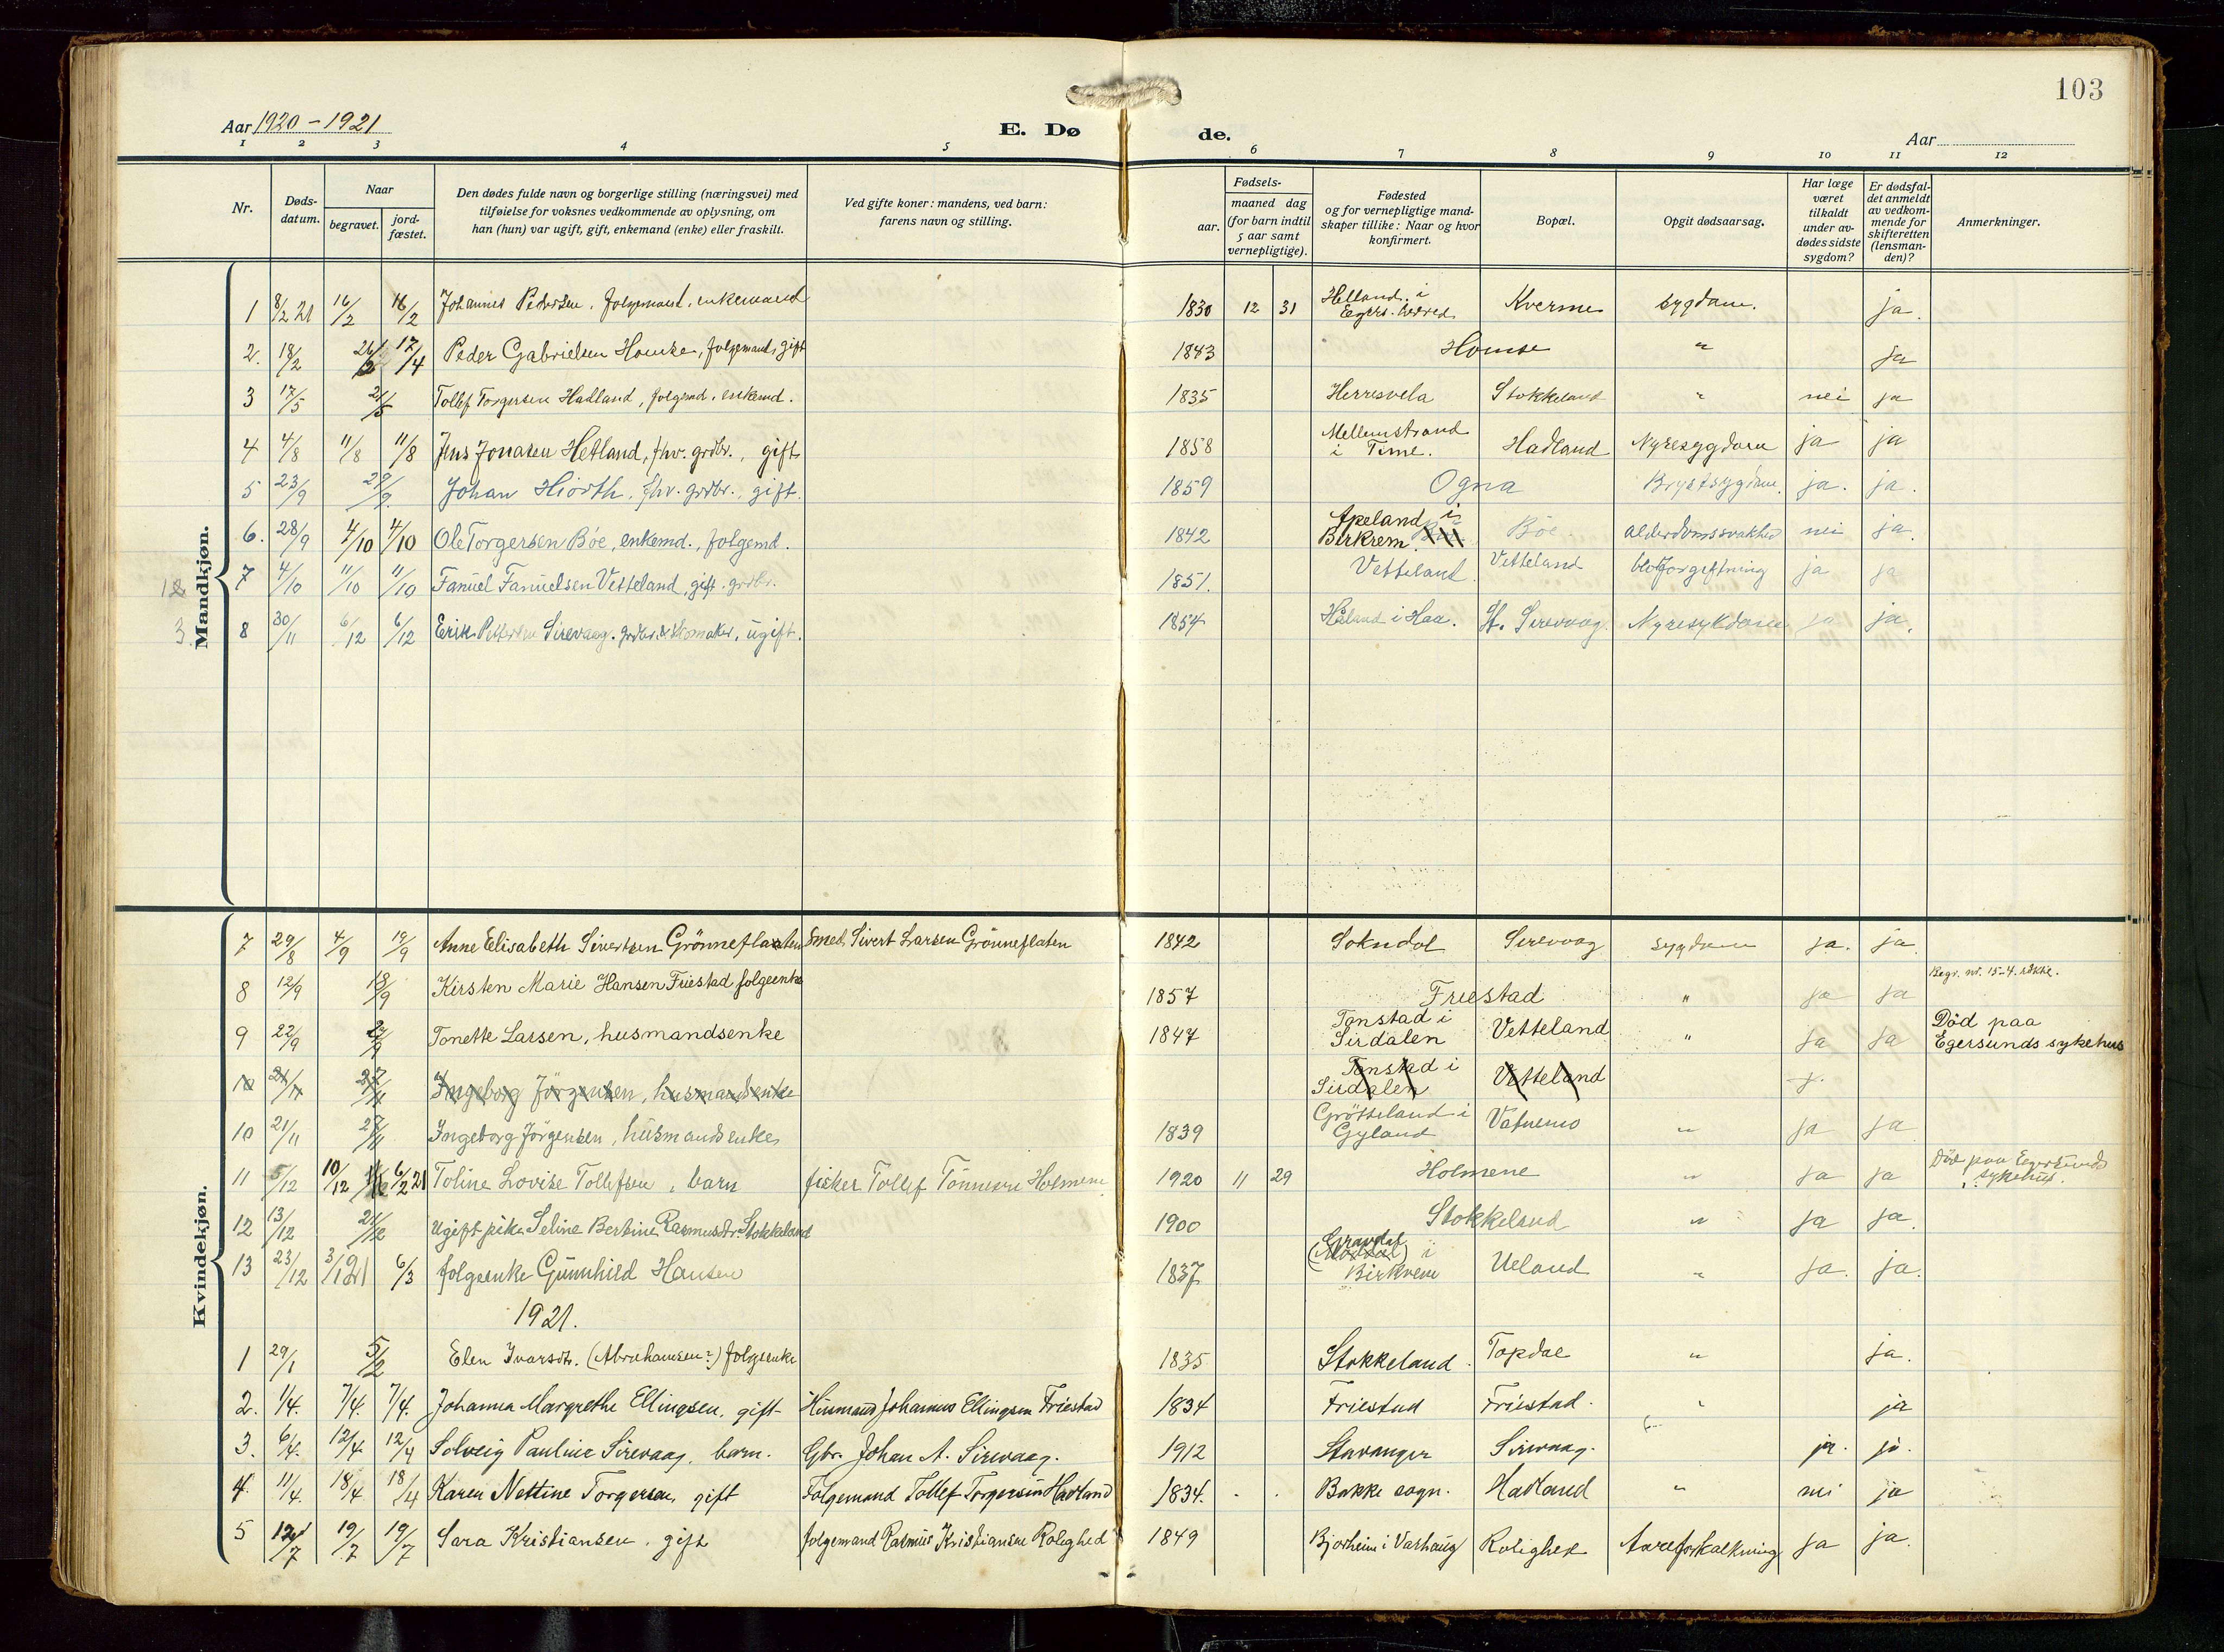 103
Aar 1920-1921
E. Døde.
Aar
1 2 3 4 5 6 7 8 9 10 11 12
Nr.
Døds-datum.
Naar
begravet.
jord-fæstet.
Den dødes fulde navn og borgerlige stilling (næringsvei) med
tilføielse for voksnes vedkommende av oplysning, om
han (hun) var ugift, gift, enkemand (enke) eller fraskilt.
Ved gifte koner: mandens, ved barn:
farens navn og stilling.
Fødsels-
aar.
maaned dag
(for barn indtil
5 aar samt
vernepligtige).
Fødested
og for vernepligtige mand-
skaper tillike: Naar og hvor
konfirmert.
Bopæl.
Opgit dødsaarsag.
Har læge
været
tilkaldt
under av-
dødes sidste
sygdom?
Er dødsfal-
det anmeldt
av vedkom-
mende for
skifteretten
(lensman-
den)?
Anmerkninger.
Mandkjøn.
1 8/2 21 16/2 16/2 Johannes Pedersen, folgemand, enkemand 1830 12 31 Helland i Egers. herred Kverme sygdom. ja.
2. 18/2 26/2 17/4 Peder Gabrielsen Homse, folgemand, gift 1843 Homse " ja
3 17/5 21/5 Tollef Torgersen Hadland, folgemd. enkemd. 1835 Herresvela Stokkeland " nei ja
4 4/8 11/8 11/8 Jens Jonasen Hetland, fhv. grdbr., gift 1858 Mellemstrand i Time. Hadland Nyresygdom ja ja
5 23/9 29/9 Johan Hiorth, fhv. grdbr., gift. 1859 Ogna Brystsygdom. ja. ja.
6. 28/9 4/10 4/10 Ole Torgersen Böe, enkemd., folgemd. 1842 Apeland i Birkrem. Böe alderdomssvakhed nei ja.
7 4/10 11/10 11/10 Fanuel Fanuelsen Vetteland, gift. grdbr. 1851. Vetteland. Vetteland blodforgiftning ja ja
8 30/11 6/12 6/12 Erik Pettersen Sirevaag. grdbr. & skomaker, ugift. 1854 Håland i Haa. St. Sirevaag. Nyresykdom ja ja.
Kvindekjøn.
7 29/8 4/9 19/9 Anne Elisabeth Sivertsen Grönneflaaten Smed Sivert Larsen Grönneflaten 1842 Sokndal Sirevaag sygdom ja. ja.
8 12/9 18/9 Kirsten Marie Hansen Friestad folgeenke 1857 Friestad " ja ja Begr. nr. 15-4. rekke.
9 22/9 27/9 Tonette Larsen, husmandsenke 1847 Tonstad i Sirdalen Vetteland " ja ja Död paa Egersunds sykehus
10 21/11 27/11 Ingeborg Jörgensen, husmandsenke Tonstad i Sirdalen Vetteland j.
10 21/11 27/11 Ingeborg Jörgensen, husmandsenke 1839 Grösseland i Gyland Vatnemo " ja ja
11 5/12 10/12 6/2 21 Toline Lovise Tollefsen, barn fisker Tollef Tönnesen Holmene 1920 11 29 Holmene " ja ja Död paa Egersunds sykehus.
12 13/12 21/12 Ugift pike Seline Bertine Rasmusdtr. Stokkeland 1900 Stokkeland " ja ja.
13 23/12 3/1 21 6/3 folgeenke Gunnhild Hansen 1837 Gravdal i Birkrem Ueland " ja. ja.
1921.
1 29/1 5/2 Elen Ivarsdtr. (Abrahamsen?) folgeenke 1835 Stokkeland. Topdal " ja.
2. 1/4. 7/4. 7/4. Johanna Margrethe Ellingsen, gift Husmand Johannes Ellingsen Friestad 1834 Friestad Friestad. " ja
3. 6/4. 12/4 12/4 Solveig Pauline Sirevaag, barn. Gbr. Johan A. Sirevaag. 1912 Stavanger Sirevaag. ja. ja.
4. 11/4. 18/4 18/4 Karen Nettine Torgersen, gift Folgemand Tollef Torgersen Hadland 1834. Bakke sogn. Hadland " nei ja
5 12/7 19/7 19/7 Sara Kristiansen, gift folgemand Rasmus Kristiansen Rolighed 1849 Bjorheim i Varhaug Rolighed Aareforkalkning ja ja.